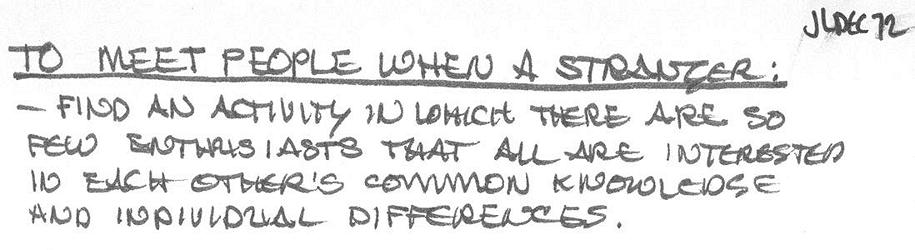 JL DEC 72
TO MEET PEOPLE WHEN A STRANGER:
– FIND AN ACTIVITY IN WHICH THERE ARE SO
FEW ENTHUSIASTS THAT ALL ARE INTERESTED
IN EACH OTHER'S COMMON KNOWLEDGE
AND INDIVIDUAL DIFFERENCES.